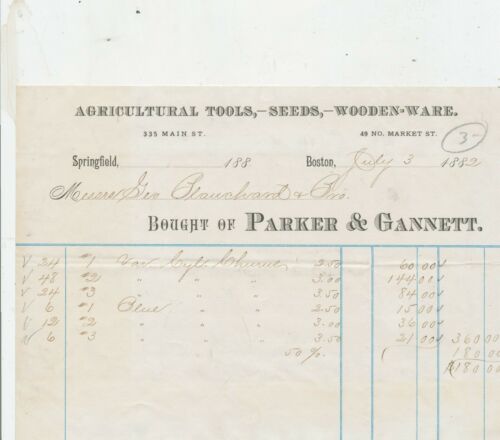 AGRICULTURAL TOOLS,—SEEDS,—WOODEN-WARE.
335 MAIN ST. 49 NO. MARKET ST. 3-
Springfield, 188 Boston, July 3 1882
Messrs Geo Blanchard & Bro.
BOUGHT OF PARKER & GANNETT.
√ 24 #1 Cyl. Churns 2.50 60 00
√ 48 #2 " " " 3.00 144 00
√ 24 #3 " " " 3.50 84 00
√ 6 #1 Blue " " 2.50 15 00
√ 12 #2 " " " 3.00 36 00
√ 6 #3 " " " 3.50 21 00 360 00
50 %. 180 00
180 00